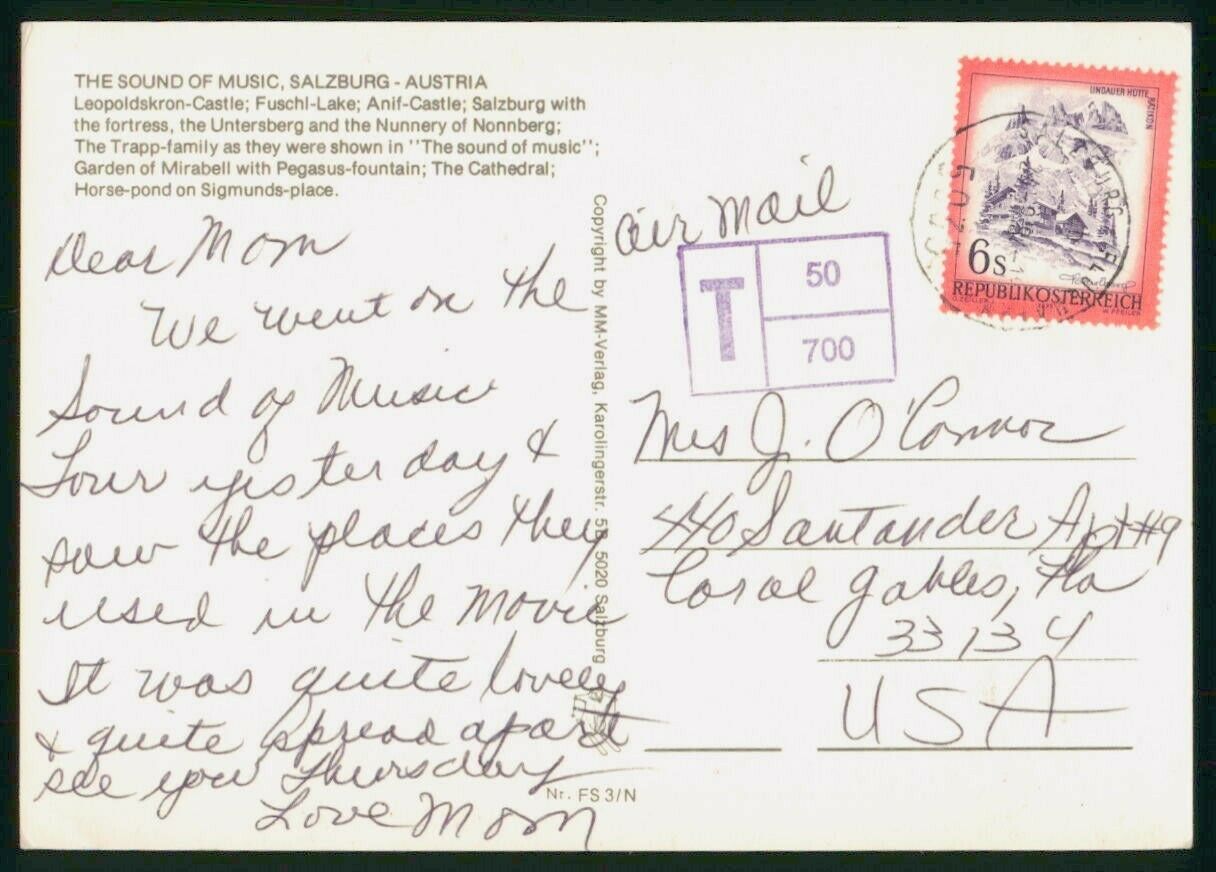 THE SOUND OF MUSIC, SALZBURG - AUSTRIA
Leopoldskron-Castle; Fuschl-Lake; Anif-Castle; Salzburg with
the fortress, the Untersberg and the Nunnery of Nonnberg;
The Trapp-family as they were shown in ''The sound of music'';
Garden of Mirabell with Pegasus-fountain; The Cathedral;
Horse-pond on Sigmunds-place.
Dear Mom
We went on the
Sound of Music
Tour yesterday &
saw the places they
used in the Movie
It was quite lovely
& quite spread apart
see you Thursday
Love Mom
Nr. FS 3/N
Copyright by MM-Verlag, Karolingerstr. 5B, 5020 Salzburg
air mail
T
50
700
LINDAUER HÜTTE, RÄTIKON
6s
REPUBLIK ÖSTERREICH
SALZBURG
Mrs J. O'Connor
440 Santander Apt #9
Coral Gables, Fla
33134
USA